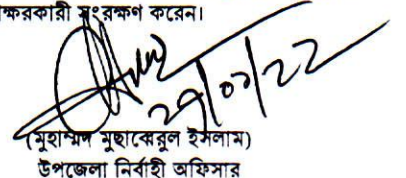 ক্ষরকারী সংরক্ষণ করেন।
২৭/০৩/২২
(মুহাম্মদ মুছাব্বেরুল ইসলাম)
উপজেলা নির্বাহী অফিসার